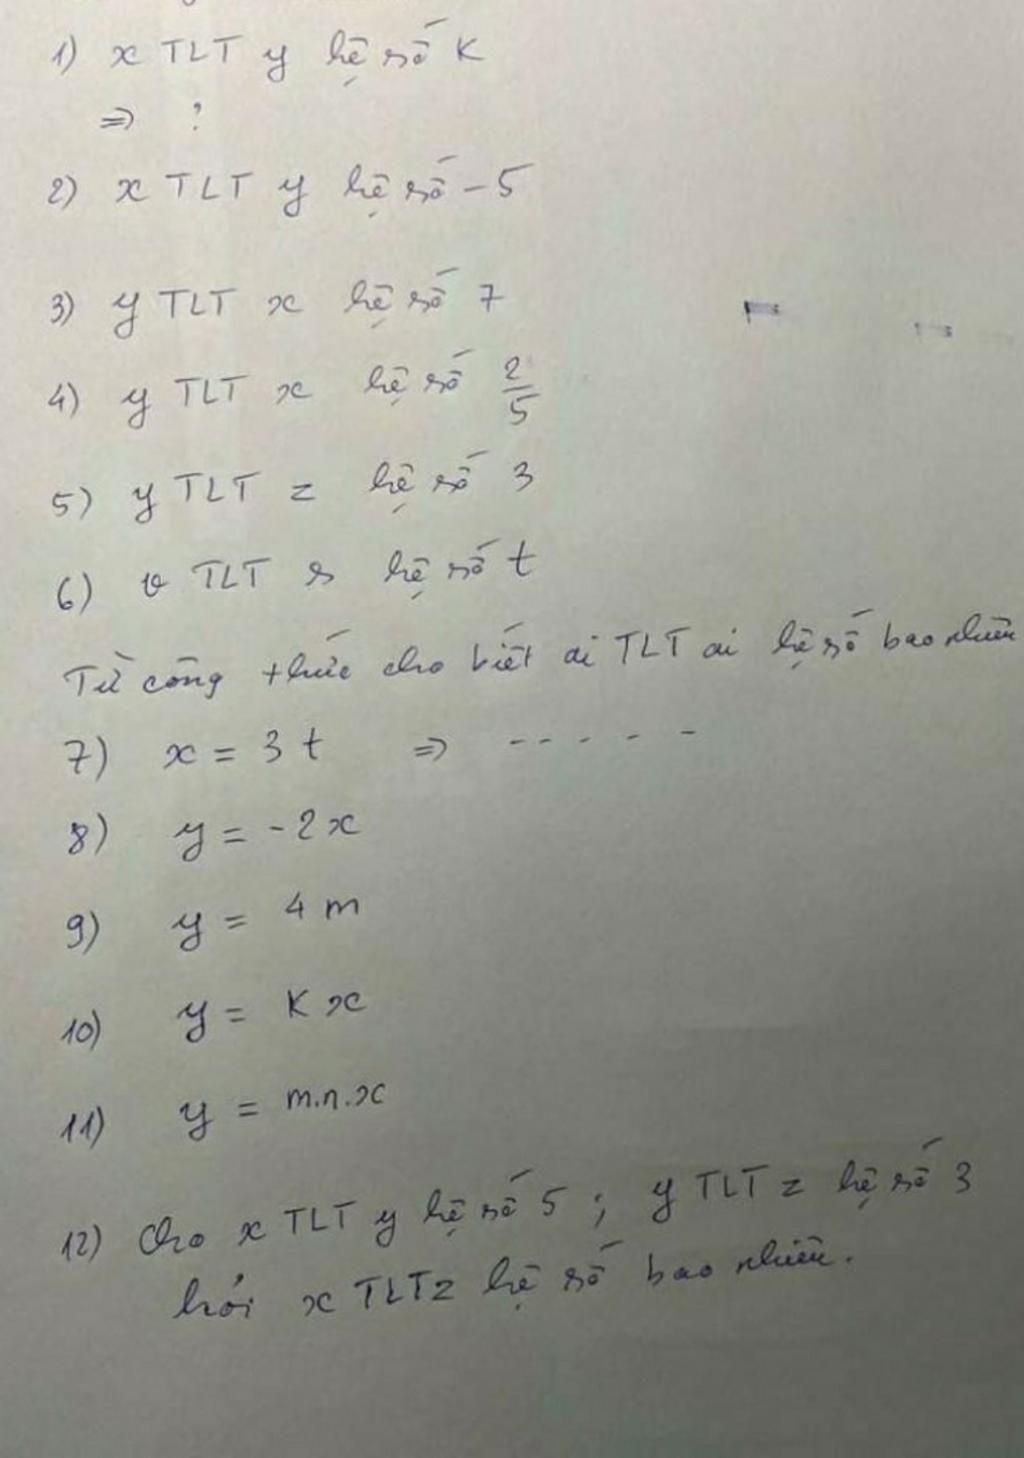 1) x TLT y hệ số K
=> ?
2) x TLT y hệ số -5
3) y TLT x hệ số 7
4) y TLT x hệ số 2/5
5) y TLT z hệ số 3
6) v TLT s hệ số t
Từ công thức cho biết ai TLT ai hệ số bao nhiêu
7) x = 3t => - - - - -
8) y = -2x
9) y = 4m
10) y = Kx
11) y = m.n.x
12) Cho x TLT y hệ số 5 ; y TLT z hệ số 3
hỏi x TLT z hệ số bao nhiêu.